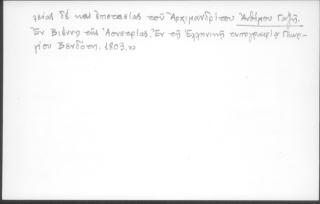 χείας δὲ καὶ ἐπιστασίας τοῦ Ἀρχιμανδρίτου Ἀνθίμου Γαζῆ.
Ἐν Βιέννῃ τῆς Ἀουστρίας. Ἐν τῇ Ἑλληνικῇ τυπογραφίᾳ Γεωρ-
γίου Βενδότη. 1803.»